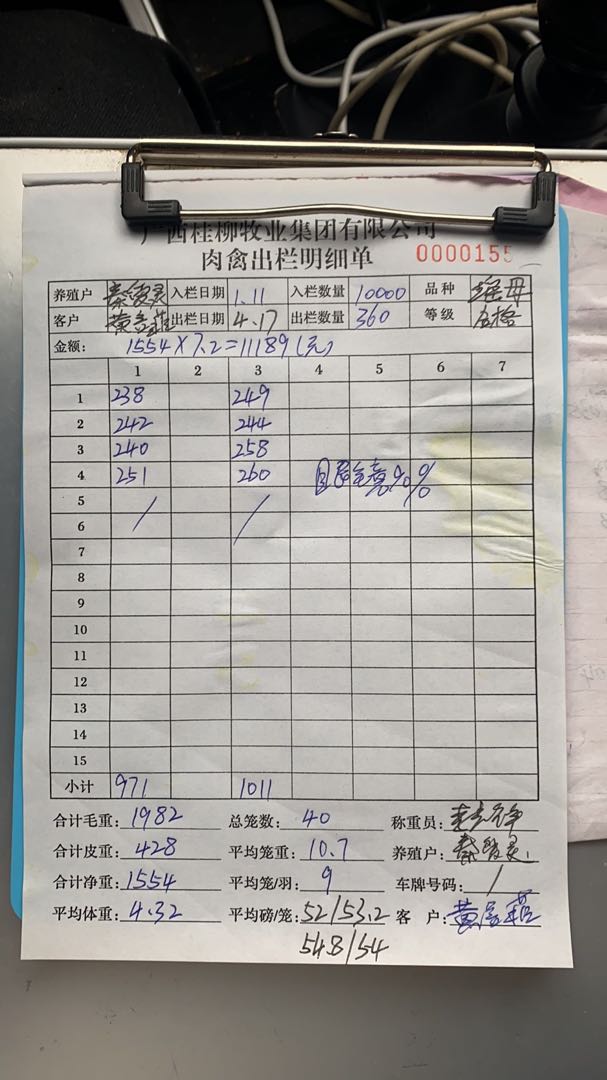 广西桂柳牧业集团有限公司
肉禽出栏明细单 0000155
养殖户 入栏日期 1.11 入栏数量 10000 品种
客户 出栏日期 4.17 出栏数量 360 等级
金额: 1554×7.2=11189(元)
1 2 3 4 5 6 7
1 238 249
2 242 244
3 240 258
4 251 260
5 / /
6
7
8
9
10
11
12
13
14
15
小计 971 1011
合计毛重: 1982 总笼数: 40 称重员:
合计皮重: 428 平均笼重: 10.7 养殖户:
合计净重: 1554 平均笼/羽: 9 车牌号码: /
平均体重: 4.32 平均磅/笼: 52/53.2 客 户:
54.8/54